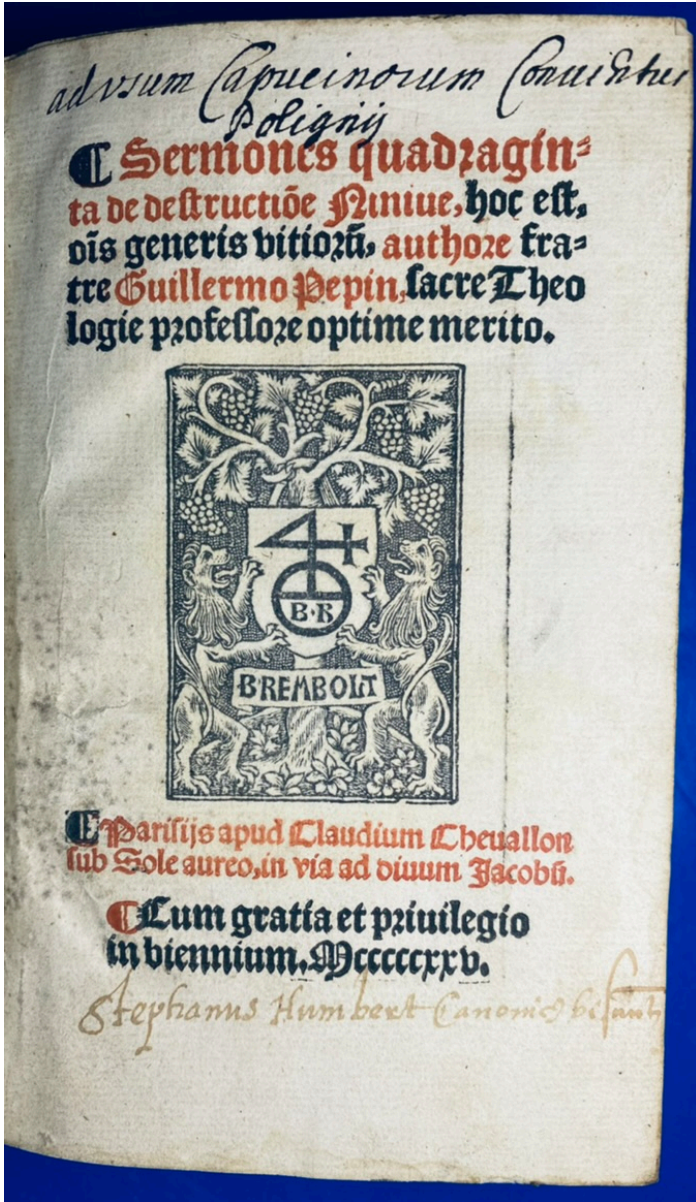 ad vsum Capucinorum Conuentus
Polignij
⸿ Sermones quadragin⸗
ta de destructiõe Niniue, hoc est,
oĩs generis vitiorũ, authore fra⸗
tre Guillermo Pepin, sacre Theo
logie professore optime merito.
B·R
BREMBOLT
⸿ Parisijs apud Claudium Cheuallon
sub Sole aureo, in via ad diuum Jacobũ.
⸿ Cum gratia et priuilegio
in biennium. Mcccccxxv.
Stephanus Humbert Canonic9